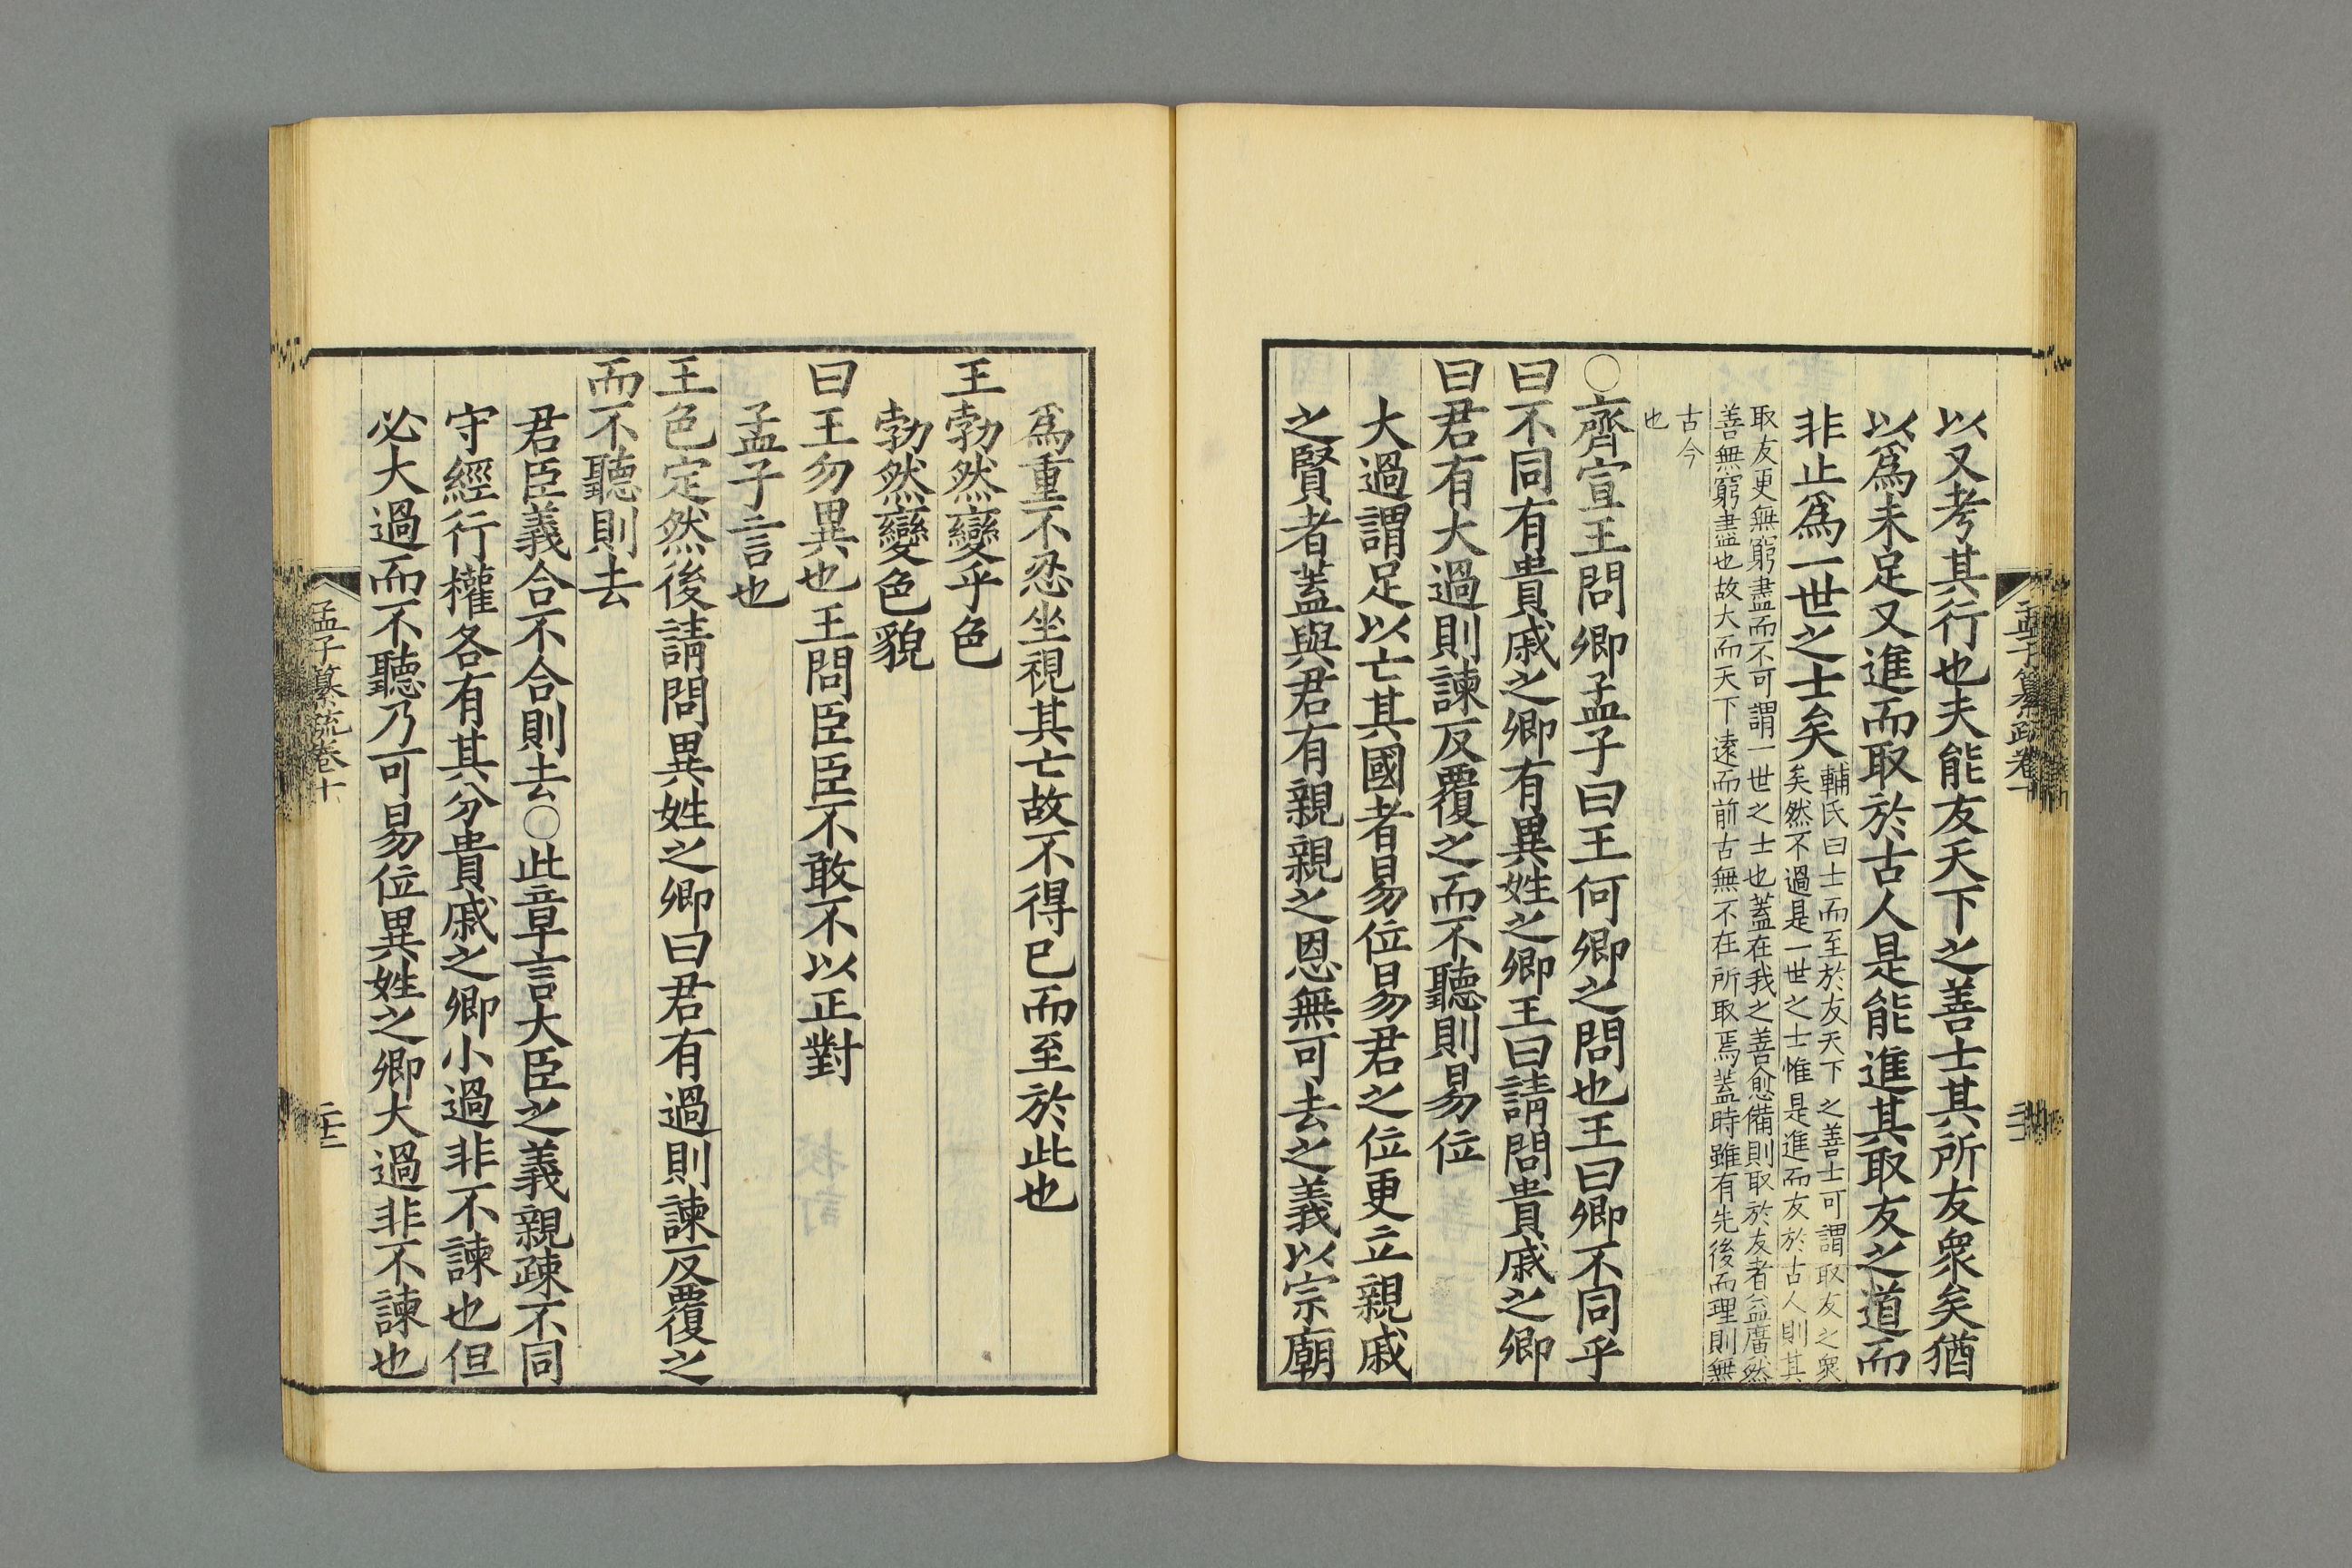 以又考其行也夫能友天下之善士其所友衆矣猶
以爲未足又進而取於古人是能進其取友之道而
非止爲一世之士矣
輔氏曰士而至於友天下之善士可謂取友之衆
矣然不過是一世之士惟是進而友於古人則其
取友更無窮盡而不可謂一世之士也蓋在我之善愈備則取於友者益廣然
善無窮盡也故大而天下遠而前古無不在所取焉蓋時雖有先後而理則無
古今
也
○齊宣王問卿孟子曰王何卿之問也王曰卿不同乎
曰不同有貴戚之卿有異姓之卿王曰請問貴戚之卿
曰君有大過則諫反覆之而不聽則易位
大過謂足以亡其國者易位易君之位更立親戚
之賢者蓋與君有親親之恩無可去之義以宗廟
孟子纂疏卷十
爲重不忍坐視其亡故不得已而至於此也
王勃然變乎色
勃然變色貌
曰王勿異也王問臣臣不敢不以正對
孟子言也
王色定然後請問異姓之卿曰君有過則諫反覆之
而不聽則去
君臣義合不合則去○此章言大臣之義親疎不同
守經行權各有其分貴戚之卿小過非不諫也但
必大過而不聽乃可易位異姓之卿大過非不諫也
孟子纂疏卷十